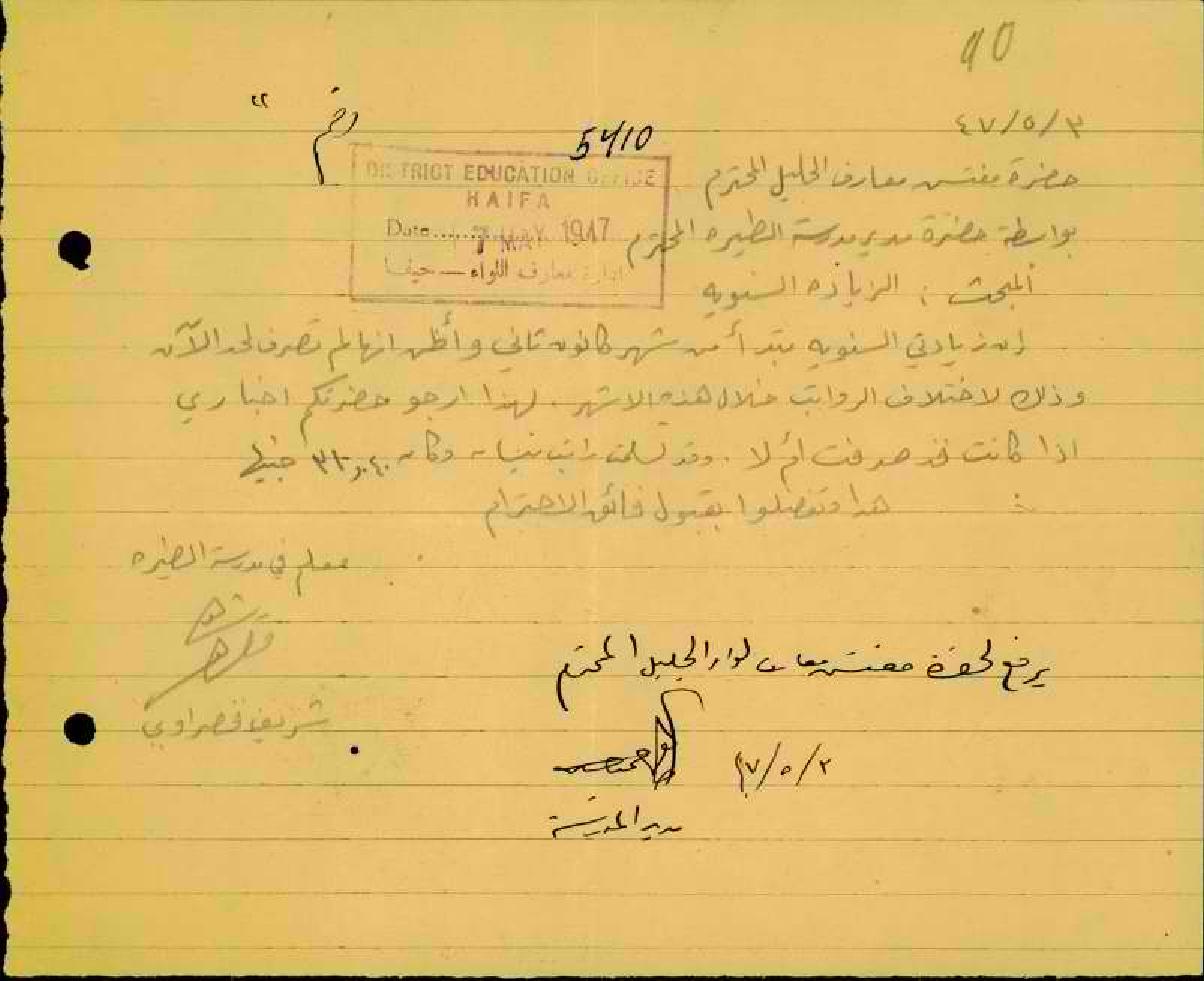 90
رقم ٢٢
5410
٤٧/٥/٣
حضرة مفتش معارف الجليل المحترم
بواسطة حضرة مدير مدرسة الطيره المحترم
DISTRICT EDUCATION OFFICE
HAIFA
Date....... 7 MAY 1947
ادارة معارف اللواء — حيفا
المبحث : الزياده السنويه
ان زيادتي السنويه تبتدأ من شهر كانون ثاني وأظن انها لم تصرف لحد الآن
وذلك لاختلاف الرواتب خلال هذه الاشهر . لهذا ارجو حضرتكم اخباري
اذا كانت قد صرفت أم لا . وقد تسلمت راتب نيسان وكان جنيها
هذا وتفضلوا بقبول فائق الاحترام
معلم في مدرسة الطيره
شريف قصراوي
يرفع لحضرة مفتش معارف لواء الجليل المحترم
٤٧/٥/٣
مدير المدرسة